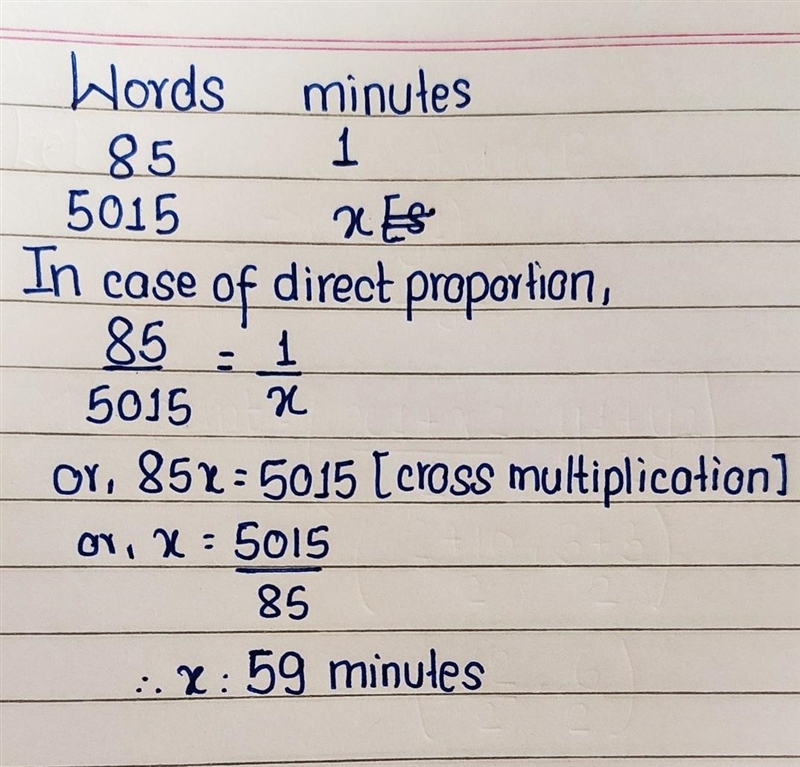 Words minutes
85 1
5015 x
In case of direct proportion,
85/5015 = 1/x
or, 85x = 5015 [cross multiplication]
or, x = 5015/85
∴ x : 59 minutes